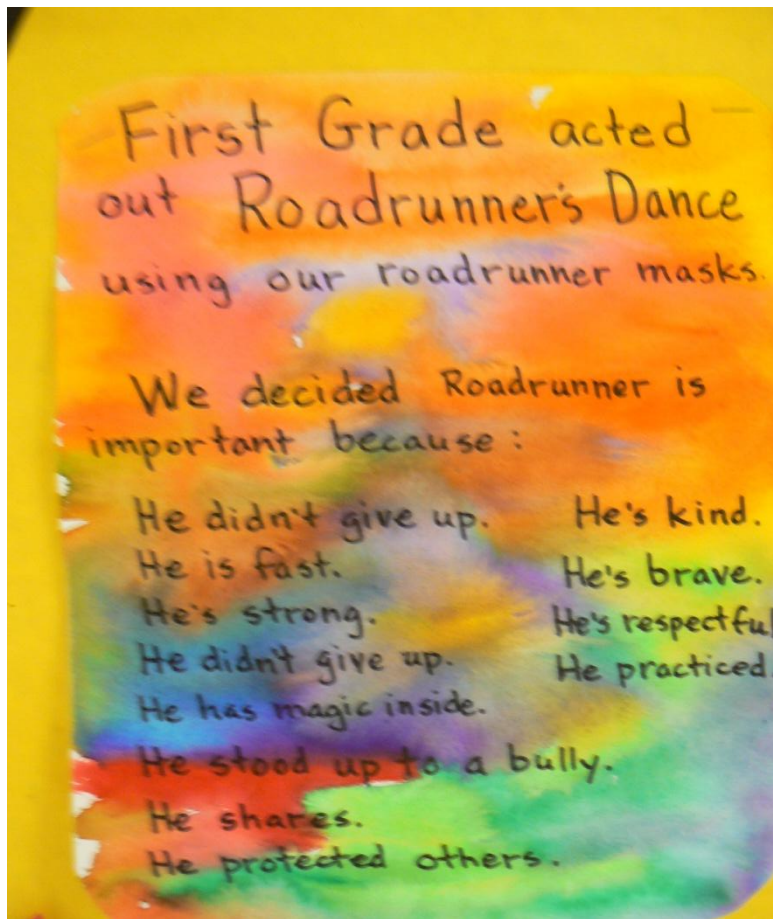 First Grade acted
out Roadrunner's Dance
using our roadrunner masks.
We decided Roadrunner is
important because :
He didn't give up.
He is fast.
He's strong.
He didn't give up.
He has magic inside.
He stood up to a bully.
He shares.
He protected others.
He's kind.
He's brave.
He's respectful
He practiced.